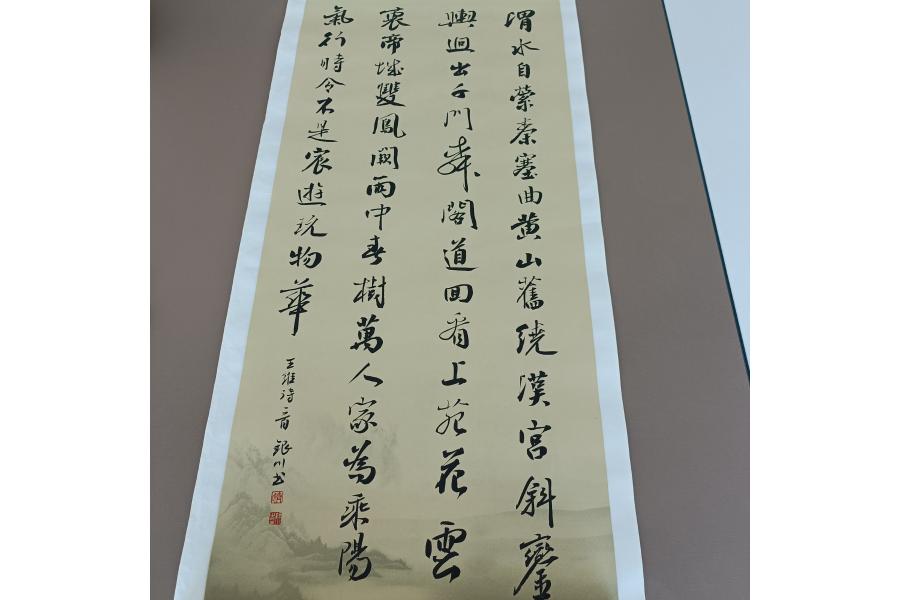 渭水自縈秦塞曲黄山舊繞漢宮斜鑾
輿迥出千門柳閣道回看上苑花雲
裏帝城雙鳳闕雨中春樹萬人家為乘陽
氣行時令不是宸遊玩物華
王維詩一首 銀川書